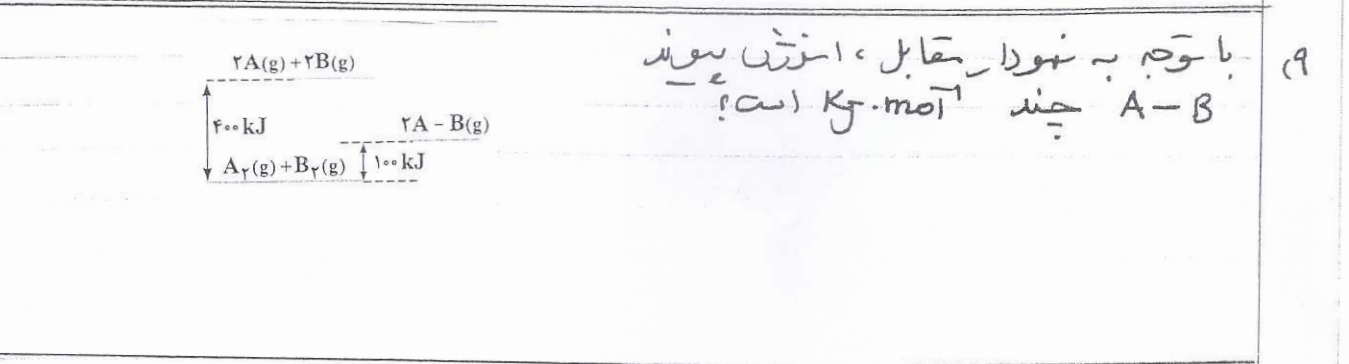 ۹) با توجه به نمودار مقابل، انرژی پیوند
A – B چند KJ.mol⁻¹ است؟
۲A(g)+۲B(g)
۴۰۰kJ
۲A – B(g)
A₂(g)+B₂(g)
۱۰۰kJ